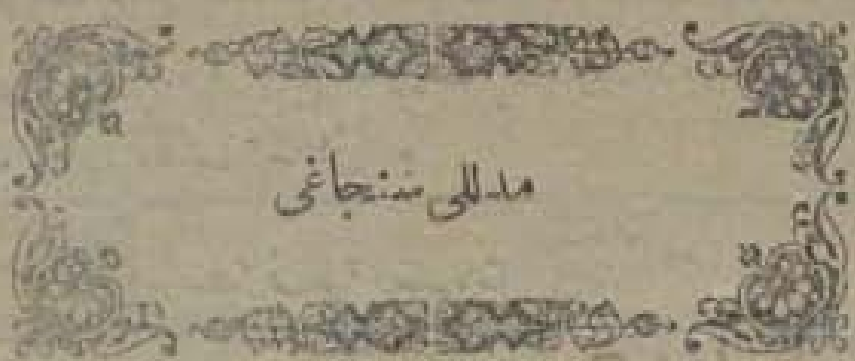 مدللی سنجاغی